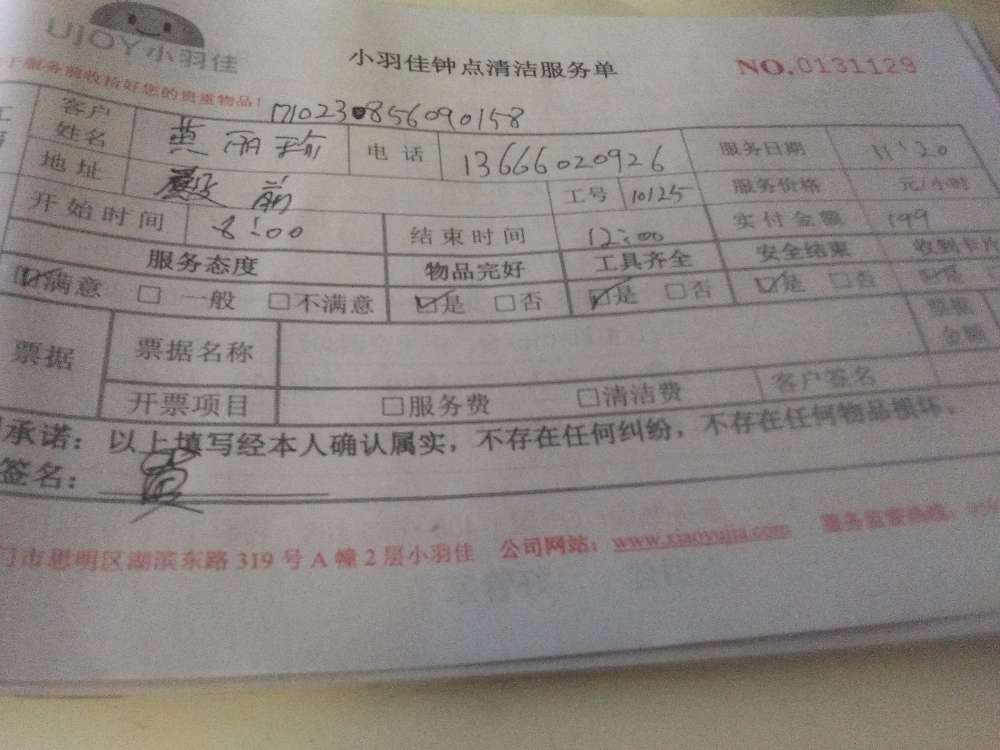 UJOY小羽佳
小羽佳钟点清洁服务单 NO.0131129
服务前收拾好您的贵重物品!
1710230856090158
客户姓名 黄雨珍 电话 13666020926 服务日期 11 20
地址 殿前 工号 10125 服务价格 元/小时
开始时间 8:00 结束时间 12:00 实付金额 199
服务态度 物品完好 工具齐全 安全结束 收到卡片
☑满意 □一般 □不满意 ☑是 □否 ☑是 □否 ☑是 □否 ☑是
票据 票据名称 票据金额
开票项目 □服务费 □清洁费 客户签名
承诺:以上填写经本人确认属实,不存在任何纠纷,不存在任何物品损坏。
签名: 黄
门市思明区湖滨东路319号A幢2层小羽佳 公司网站:www.xiaoyujia.com 服务监督热线: